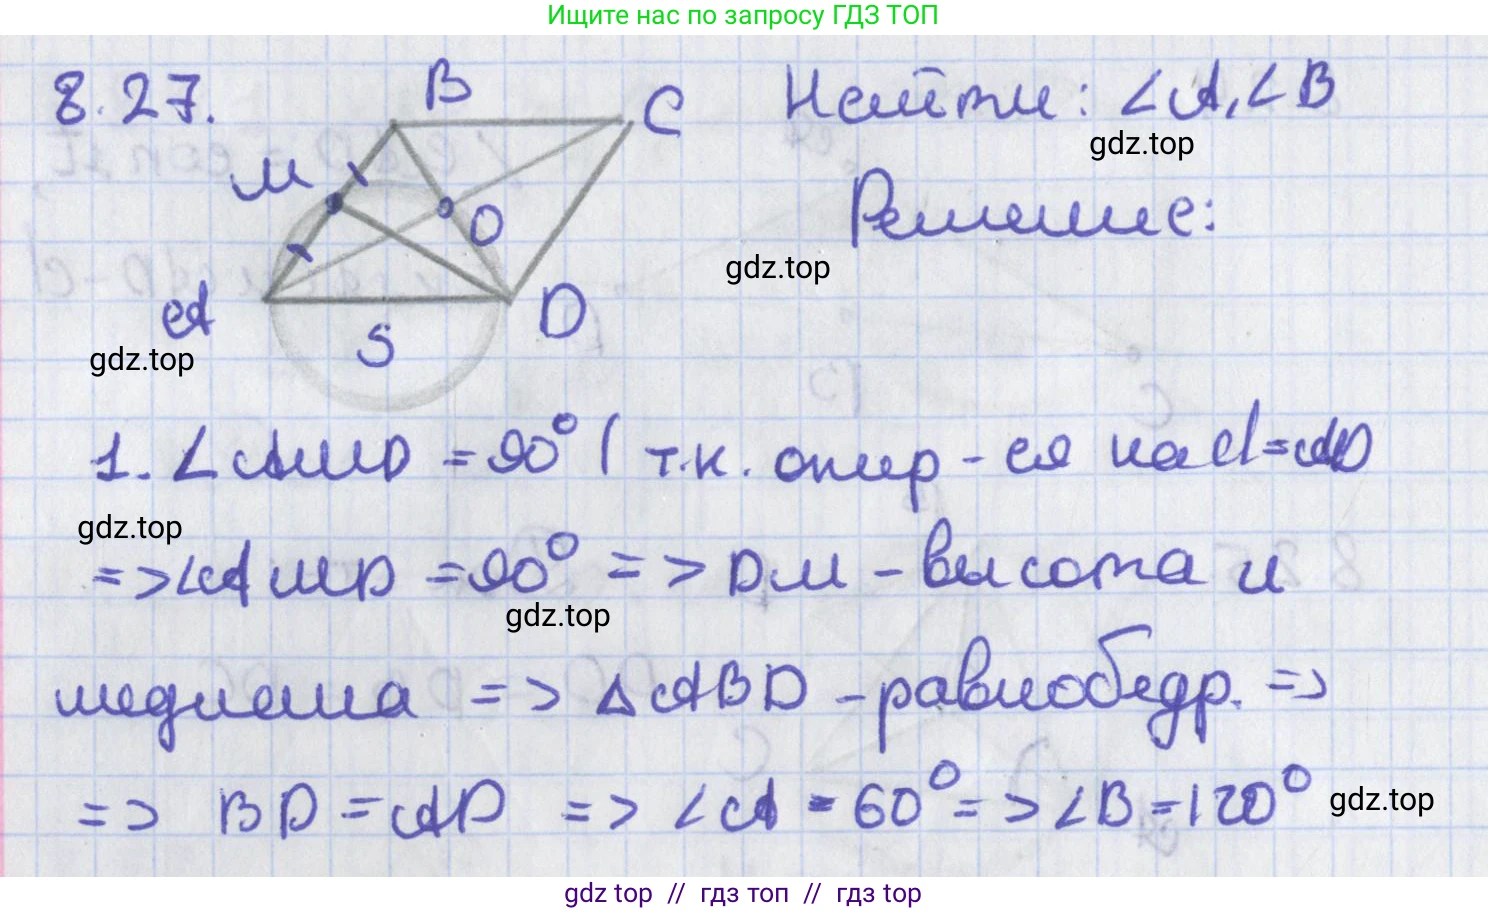 Ищите нас по запросу ГДЗ ТОП
8.27.
B
C
M
O
A
D
S
Найти: ∠A, ∠B
gdz.top
Решение:
gdz.top
gdz.top
1. ∠AMD = 90° ( т.к. опир-ся на d=AD
gdz.top
=> ∠AMD = 90° => DM - высота и
gdz.top
медиана => △ABD - равнобедр. =>
=> BD = AD => ∠A = 60° => ∠B = 120°
gdz.top
gdz.top // гдз топ // gdz.top